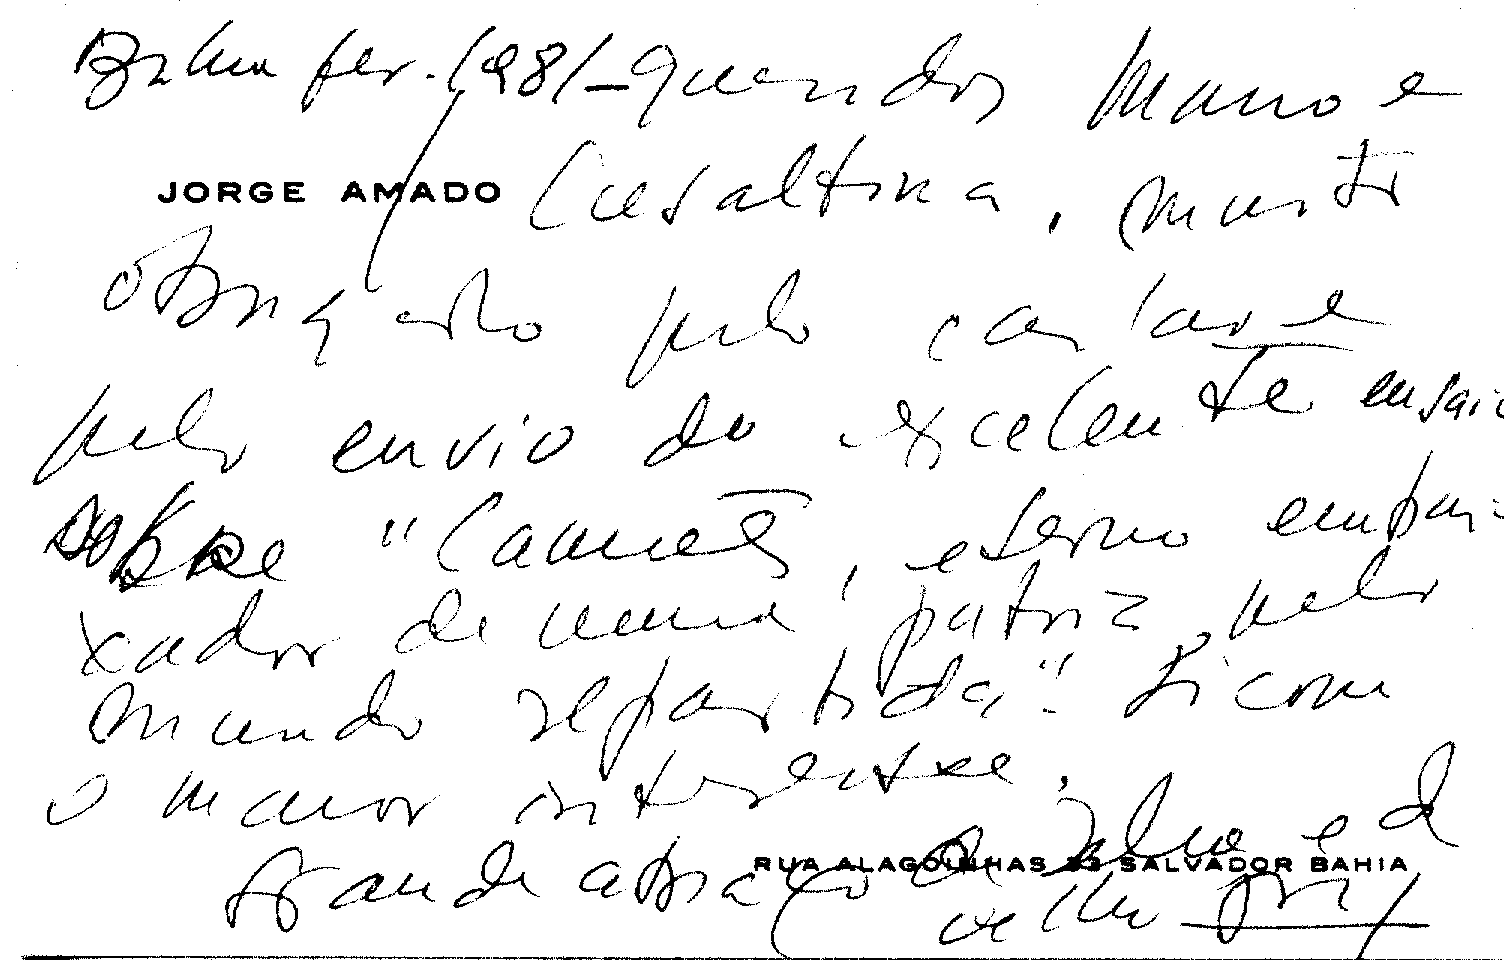 Bahia fev. 1981 - Queridos Mano e
JORGE AMADO
Cesaltina, muito
obrigado pelo cartão e
pelo envio do excelente ensaio
sobre "Camões, eterno embai-
xador de uma pátria pelo
mundo repartida". Li com
o maior interesse.
Grande abraço de Zélia e do
RUA ALAGOINHAS 33 SALVADOR BAHIA
velho Jorge